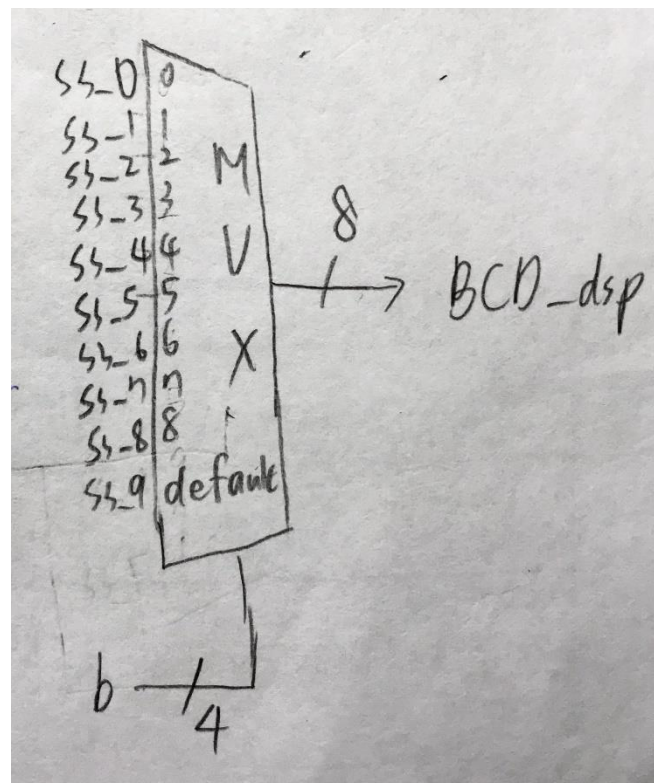 ss_0 0
ss_1 1
ss_2 2
ss_3 3
ss_4 4
ss_5 5
ss_6 6
ss_n n
ss_8 8
ss_9 default
MUX
8
BCD_dsp
b
4